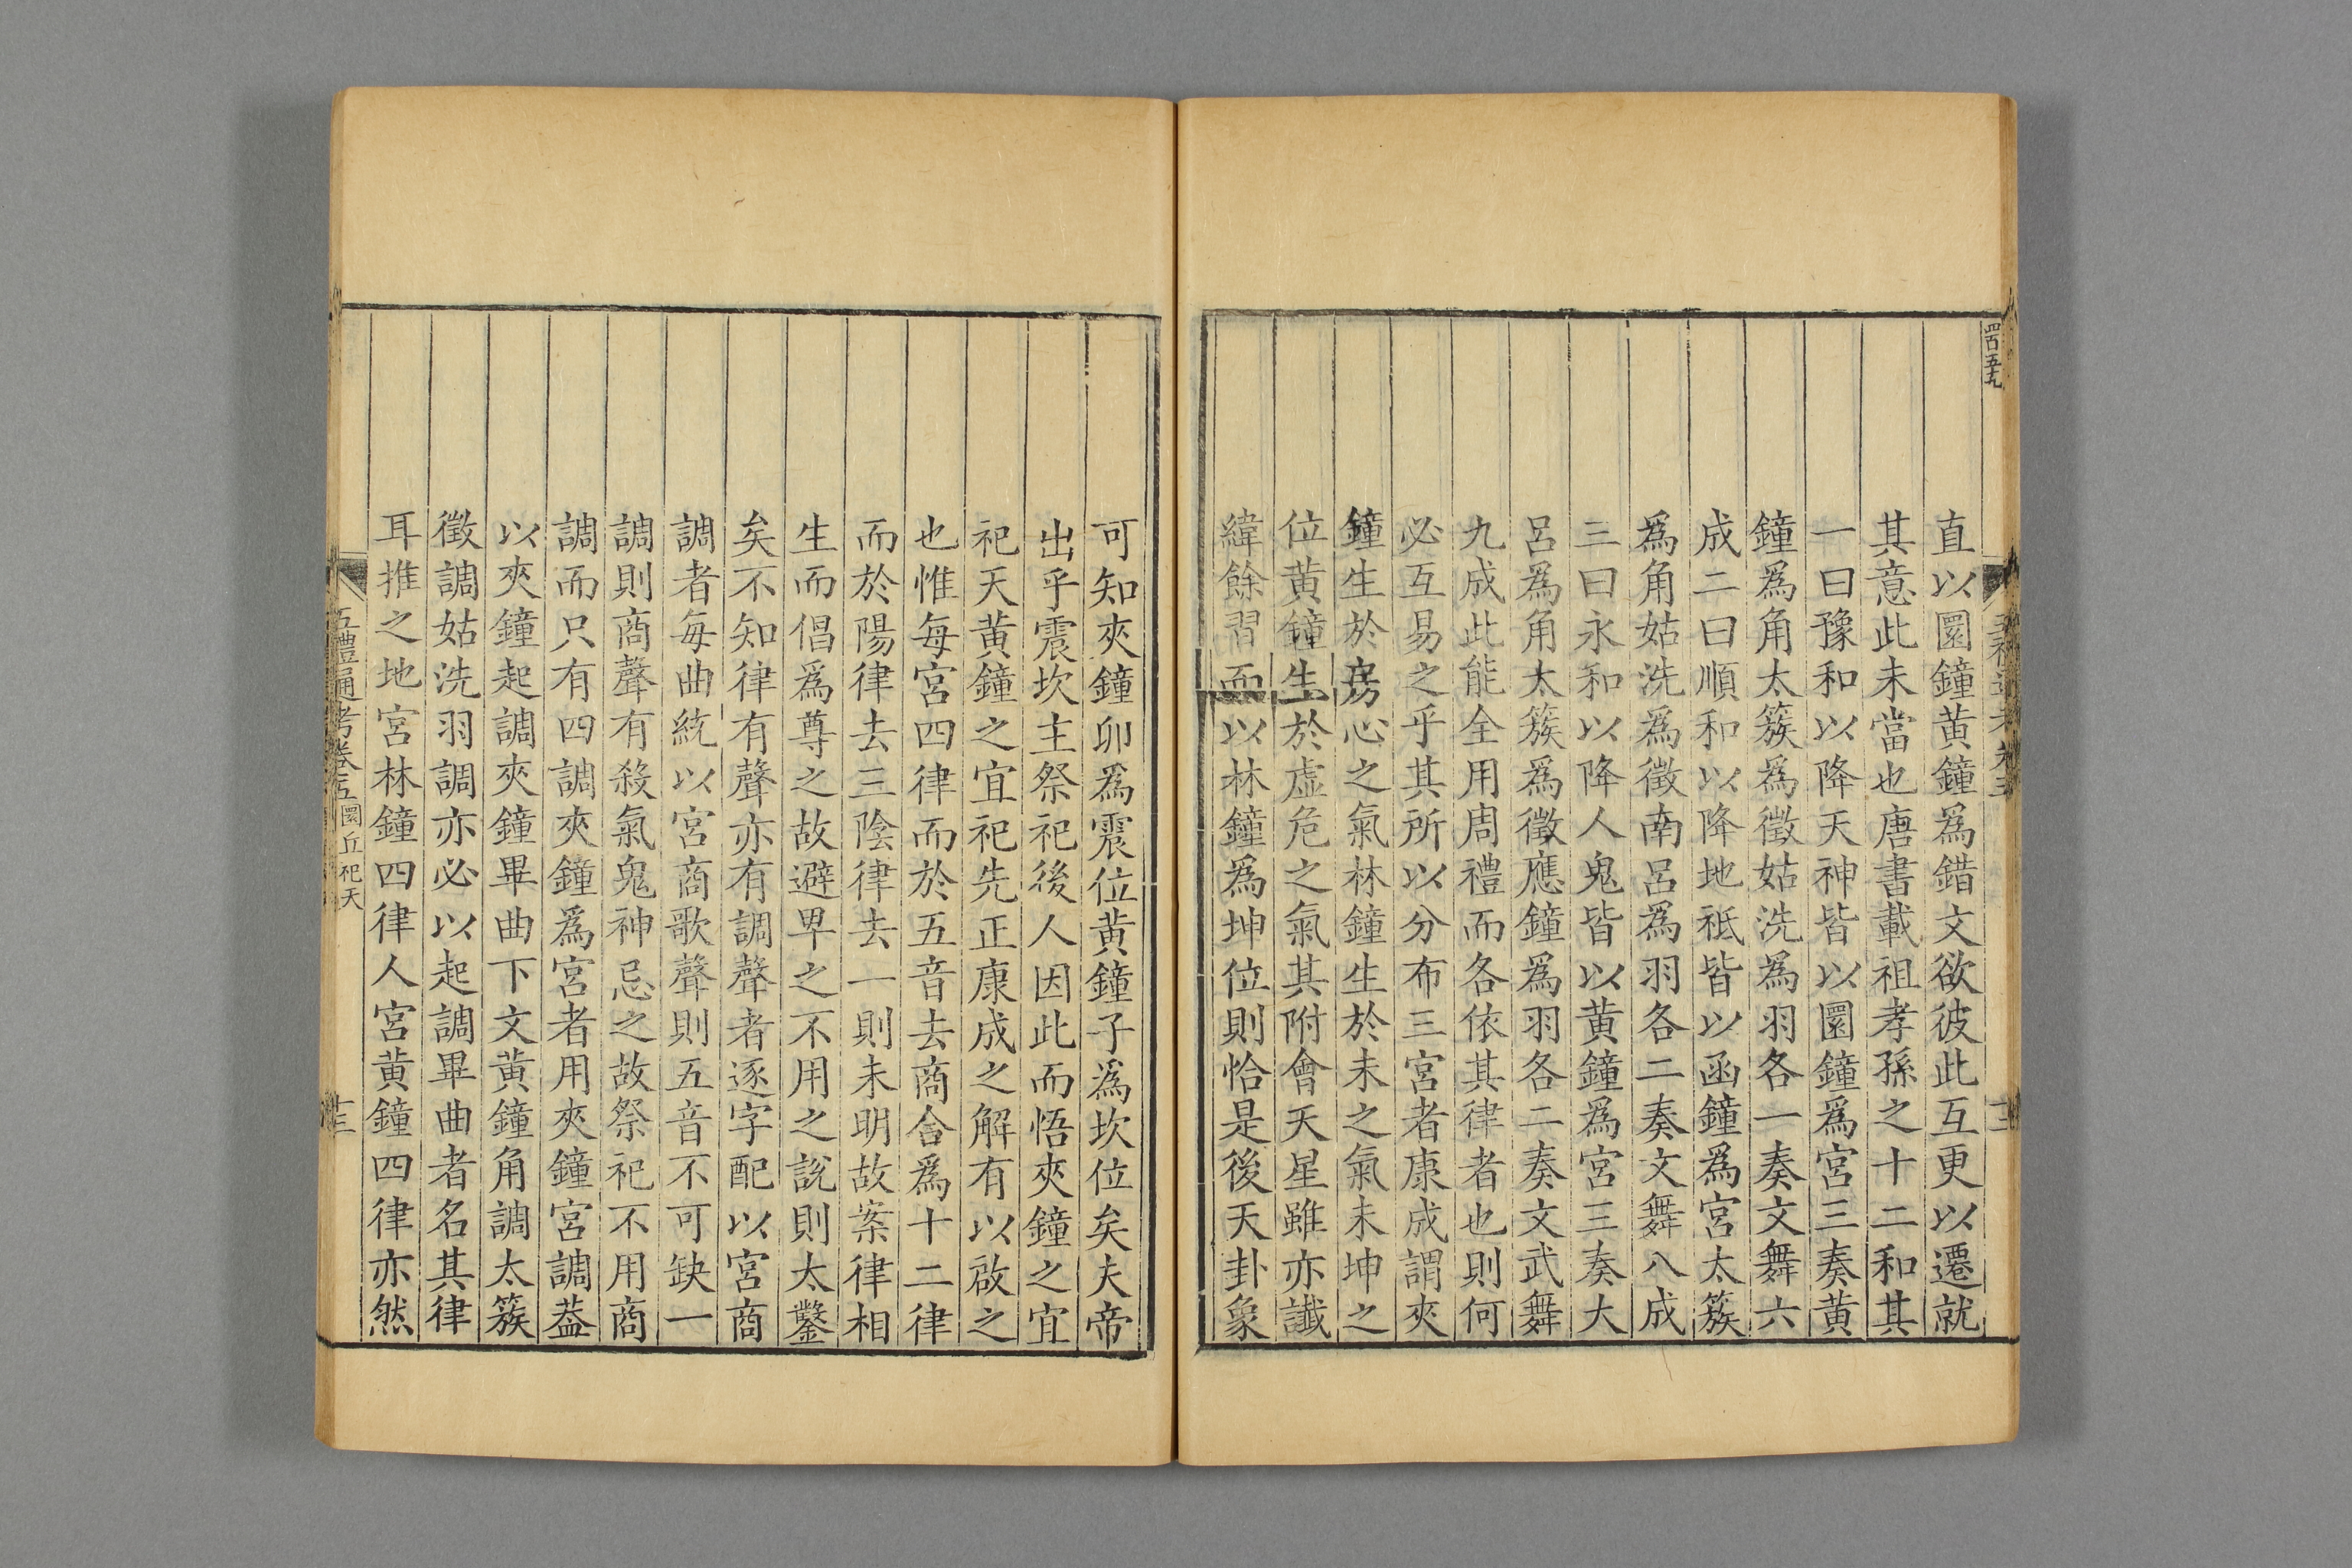 直以圜鐘黄鐘爲錯文欲彼此互更以遷就
其意此未當也唐書載祖孝孫之十二和其
一曰豫和以降天神皆以圜鐘爲宮三奏黄
鐘爲角太簇爲徵姑洗爲羽各一奏文舞六
成二曰順和以降地祗皆以函鐘爲宮太簇
爲角姑洗爲徵南呂爲羽各二奏文舞八成
三曰永和以降人鬼皆以黄鐘爲宮三奏大
呂爲角太簇爲徵應鐘爲羽各二奏文武舞
九成此能全用周禮而各依其律者也則何
必互易之乎其所以分布三宮者康成謂夾
鐘生於房心之氣林鐘生於未之氣未坤之
位黄鐘生於虛危之氣其附會天星雖亦讖
緯餘習而以林鐘爲坤位則恰是後天卦象
可知夾鐘卯爲震位黄鐘子爲坎位矣夫帝
出乎震坎主祭祀後人因此而悟夾鐘之宜
祀天黄鐘之宜祀先正康成之解有以啟之
也惟每宮四律而於五音去商合爲十二律
而於陽律去三陰律去一則未明故案律相
生而倡爲尊之故避卑之不用之說則太鑿
矣不知律有聲亦有調聲者逐字配以宮商
調者每曲統以宮商歌聲則五音不可缺一
調則商聲有殺氣鬼神忌之故祭祀不用商
調而只有四調夾鐘爲宮者用夾鐘宮調葢
以夾鐘起調夾鐘畢曲下文黄鐘角調太簇
徵調姑洗羽調亦必以起調畢曲者名其律
耳推之地宮林鐘四律人宮黄鐘四律亦然
五禮通考卷五 圜丘祀天 十三